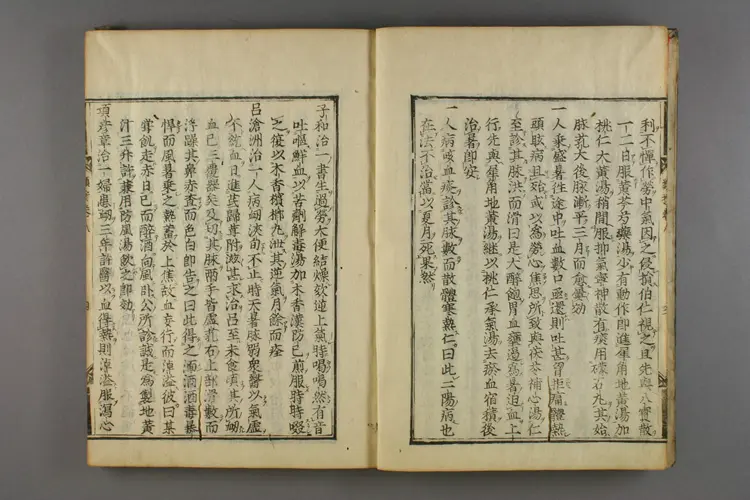 利不憚作勞中氣因之侵損伯仁視之且先與八寶散
一二日服黃芩芍藥湯少有動作即進犀角地黃湯加
桃仁大黃湯稍間服抑氣寧神散有痰用礞石丸其始
脉芤大後脉漸平三月而愈
一人乘盛暑往途中吐血數口亟還則吐甚胃拒痛體熱
頭眩病且殆或以為勞心焦思所致與茯苓補心湯仁
至診其脉洪而滑曰是大醉飽胃血壅遏為暑迫血上
行先與犀角地黃湯繼以桃仁承氣湯去瘀血宿積後
治暑即安
一人病咳血痰診其脉數而散體寒熱仁曰此二陽病也
在法不治當以夏月死果然
子和治一書生過勞大便結燥欬逆上氣時喝喝然有音
吐嘔鮮血以苦劑解毒湯加木香漢防己煎服時時啜
之復以木香檳榔丸泄其逆氣月餘而痊
呂滄洲治一人病衂浹旬不止時天暑脉弱衆醫以氣虛
不統血日進茋歸尊附滋甚求治呂至未食頃其所衂
血已三墨器矣及切其脉兩手皆虛芤右上部滑數而
浮躁其鼻赤查而色白即告之曰此得之湎酒酒毒暴
悍而風暑乘之熱蓄於上焦故血妄行而淖溢彼曰某
嘗飢走赤日已而醉酒向風卧公所診誠是為製地黃
汁三升許兼用防風湯飲之即効
項彥章治一婦患衂三年許醫以血得熱則淖溢服瀉心